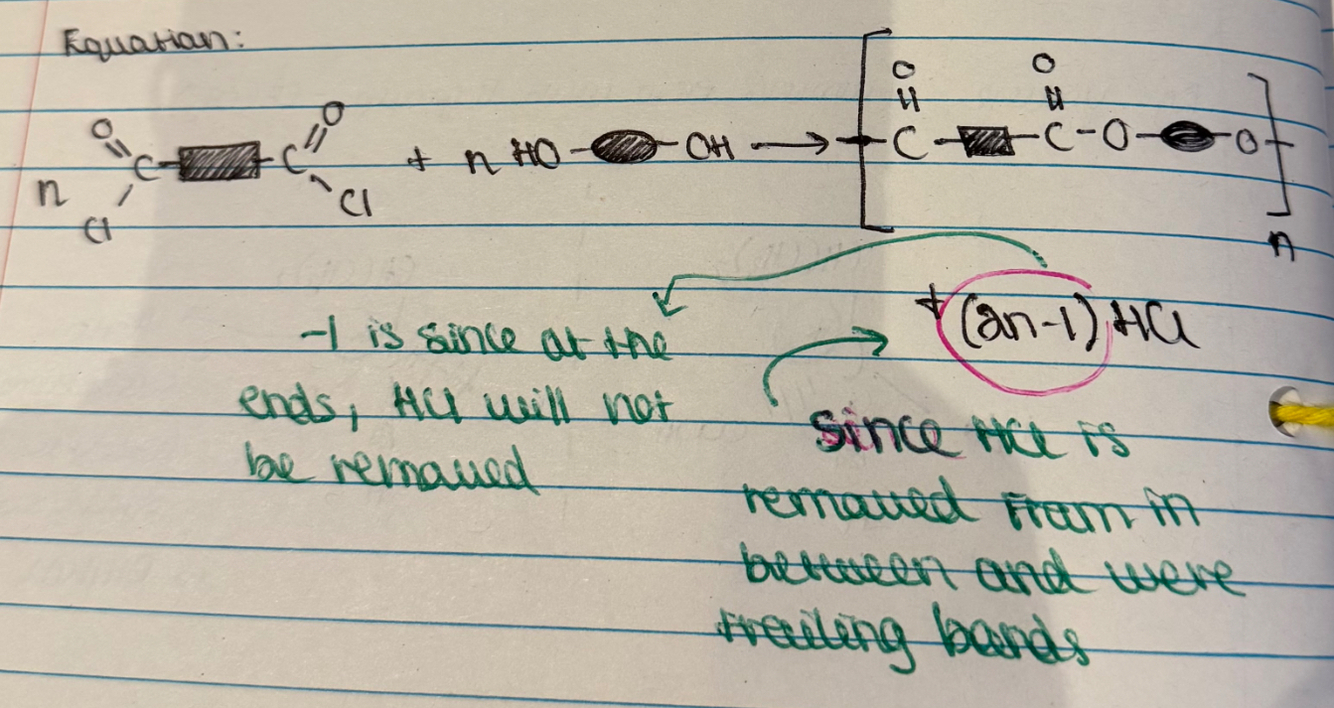 Equation:
O O
O O || ||
n C C + n HO - - OH → [ - C - - C - O - - O - ]
Cl Cl n
+ (2n-1) HCl
-1 is since at the
ends, HCl will not
be removed
since HCl is
removed from in
between and were
trailing bonds